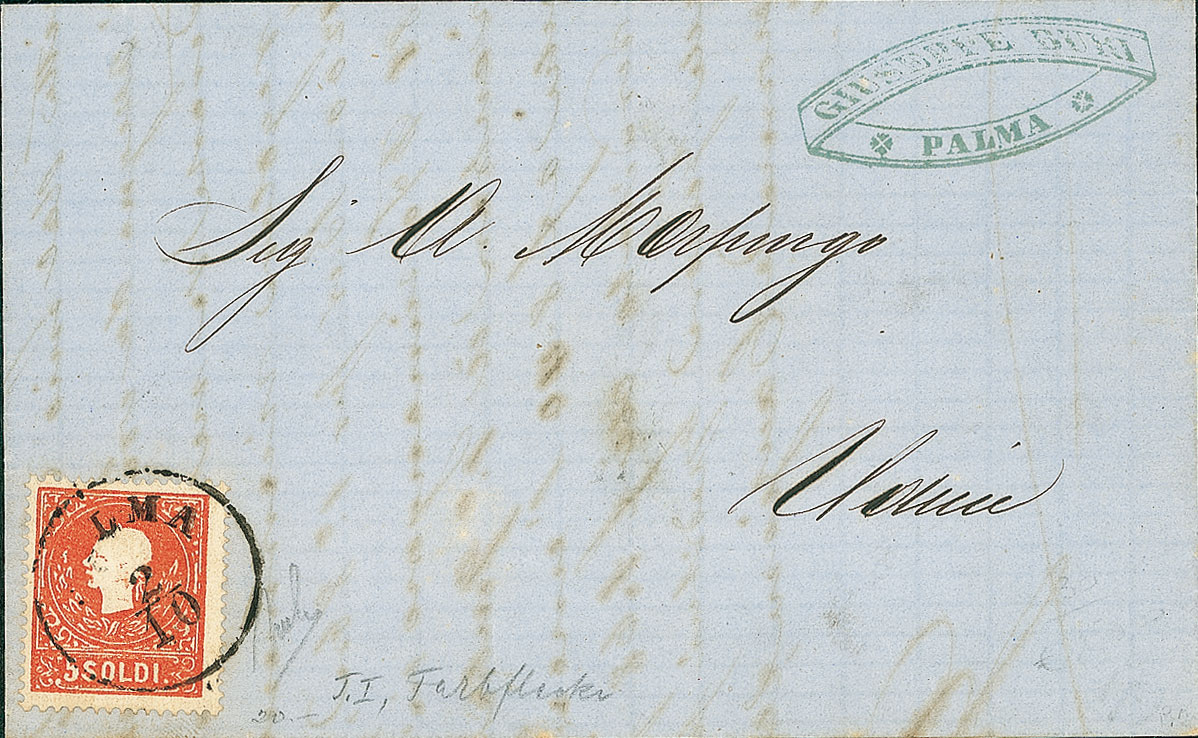 GIUSEPPE BURI
PALMA
Sig A. Morpurgo
Udine
LMA
2/10
5 SOLDI.
T.I, Farbflecke
20.—